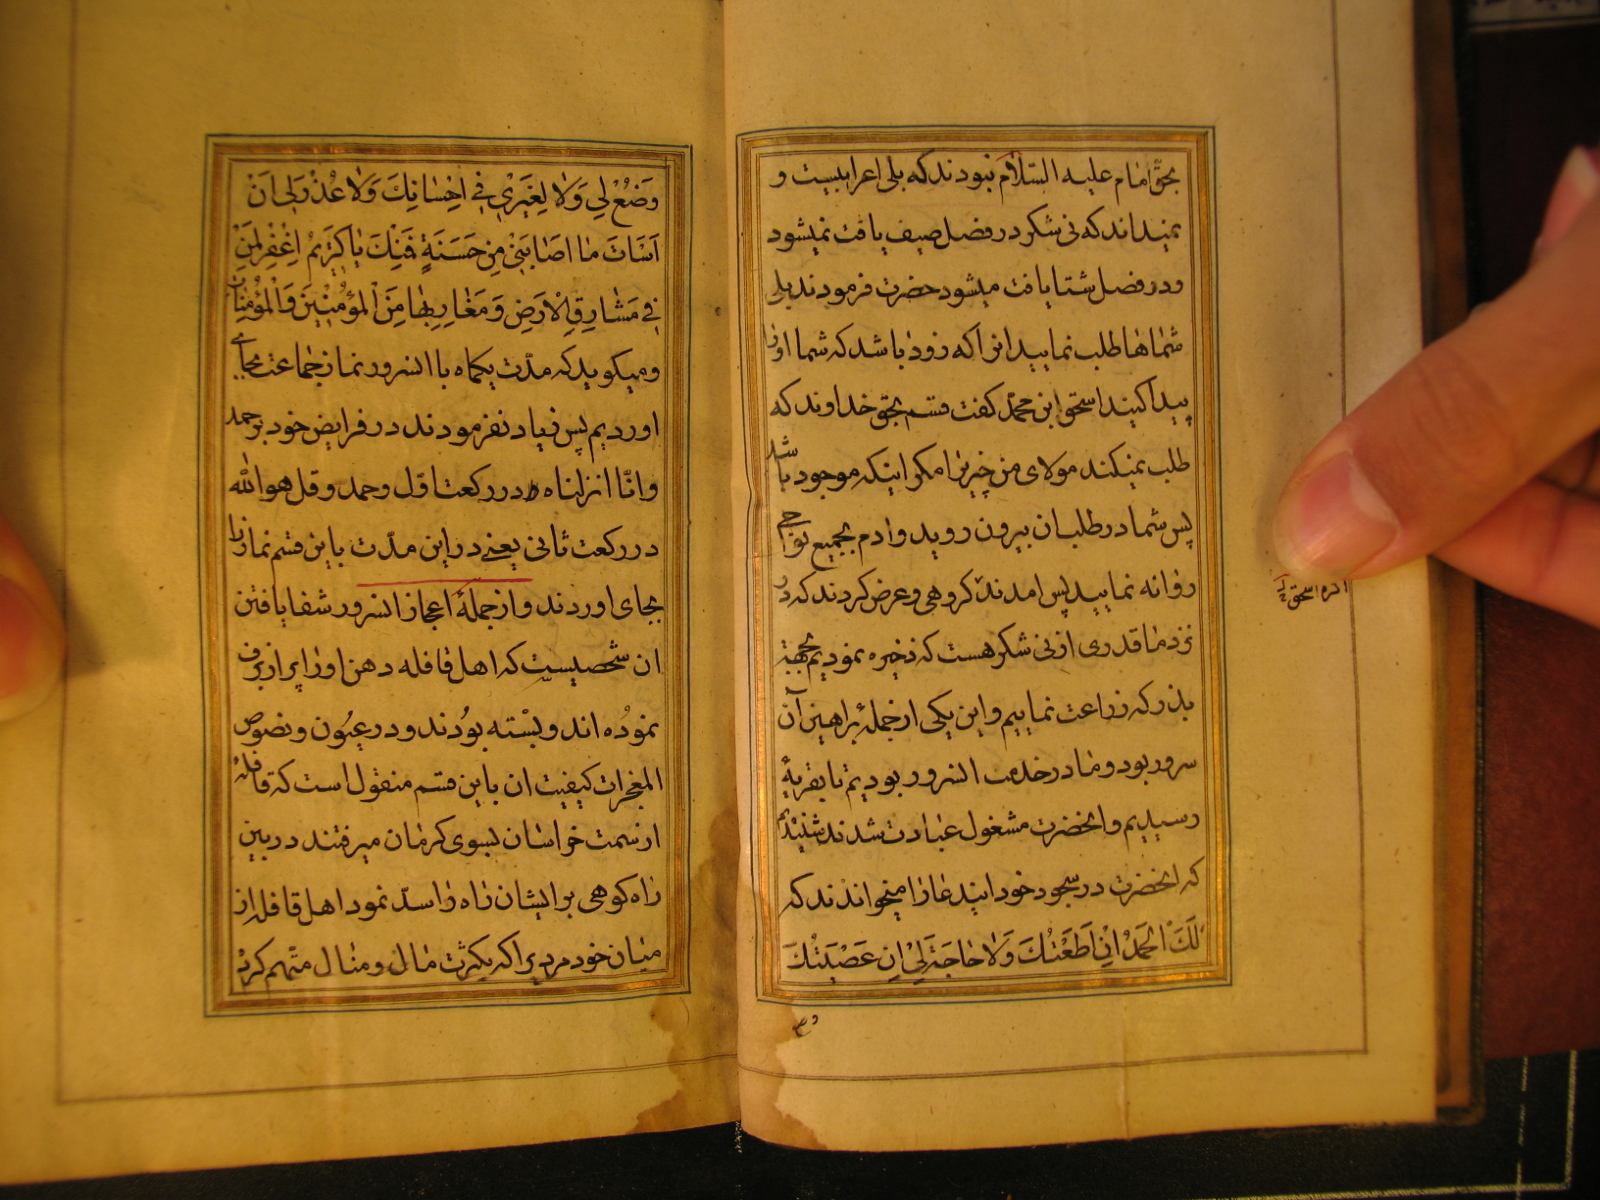 بحق امام علیه السلام نبودند که بلی اعرابیست و
نمیداند که نی شکر در فصل صیف یافت نمیشود
و در فصل شتا یافت میشود حضرت فرمودند بلی
شماها طلب نمایید انرا که زود باشد که شما او را
پیدا کنید اسحق ابن محمد کفت قسم بحق خداوند که
طلب نمیکند مولای من چیزیرا مکر اینکه موجود باشد
پس شما در طلب ان بیرون روید و ادم بجمیع نواحی
روانه نمایید پس امدند کروهی و عرض کردند که در
نزد ما قدری از نی شکر هست که ذخیره نمودیم بجهة
بذر که زراعت نماییم و این یکی از جملهٔ براهین آن
سرور بود و ما در خدمت انسرور بودیم تا بقریهٔ
رسیدیم و انحضرت مشغول عبادت شدند شنیدیم
که انحضرت در سجود خود ایندعا را میخواندند که
لَكَ الحَمدُ اِنْ اَطَعْتُكَ وَلا حاجَةَ لِي اِن عَصَيتُكَ
و ض
اکره اسحق
وَ ضُعْ لِي وَلا لِغَيرِي فِي اِحْسانِكَ وَلا عُذْرَ لِي اَنْ
اَسَاتَ ما اصَابَنِي مِن حَسَنَةٍ فَمِنْكَ يا كَرِيمُ اِغْفِر لِمَنْ
فِي مَشارِقِ الْاَرضِ وَمَغارِبِها مِنَ الْمُؤمِنِينَ وَالْمُؤمِنات
و میکوید که مدت یکماه با انسرور نماز جماعت بجای
اوردیم پس زیاد نفرمودند در فرایض خود بر حمد
و انّا انزلناه در رکعت اوّل و حمد و قل هو الله
در رکعت ثانی یعنی در این مدّت باین قسم نماز را
بجای اوردند و از جملهٔ اعجاز انسرور شفا یافتن
ان شخصیست که اهل قافله دهن او را پر از برف
نموده اند و بسته بودند و در عیون و نصوص
المعجزات کیفیت ان باین قسم منقول است که قافلهٔ
از سمت خراسان بسوی کرمان میرفتند در بین
راه کوهی بر ایشان راه را سدّ نمود اهل قافله از
میان خود مردیرا که بکثرت مال و منال متّهم کرد